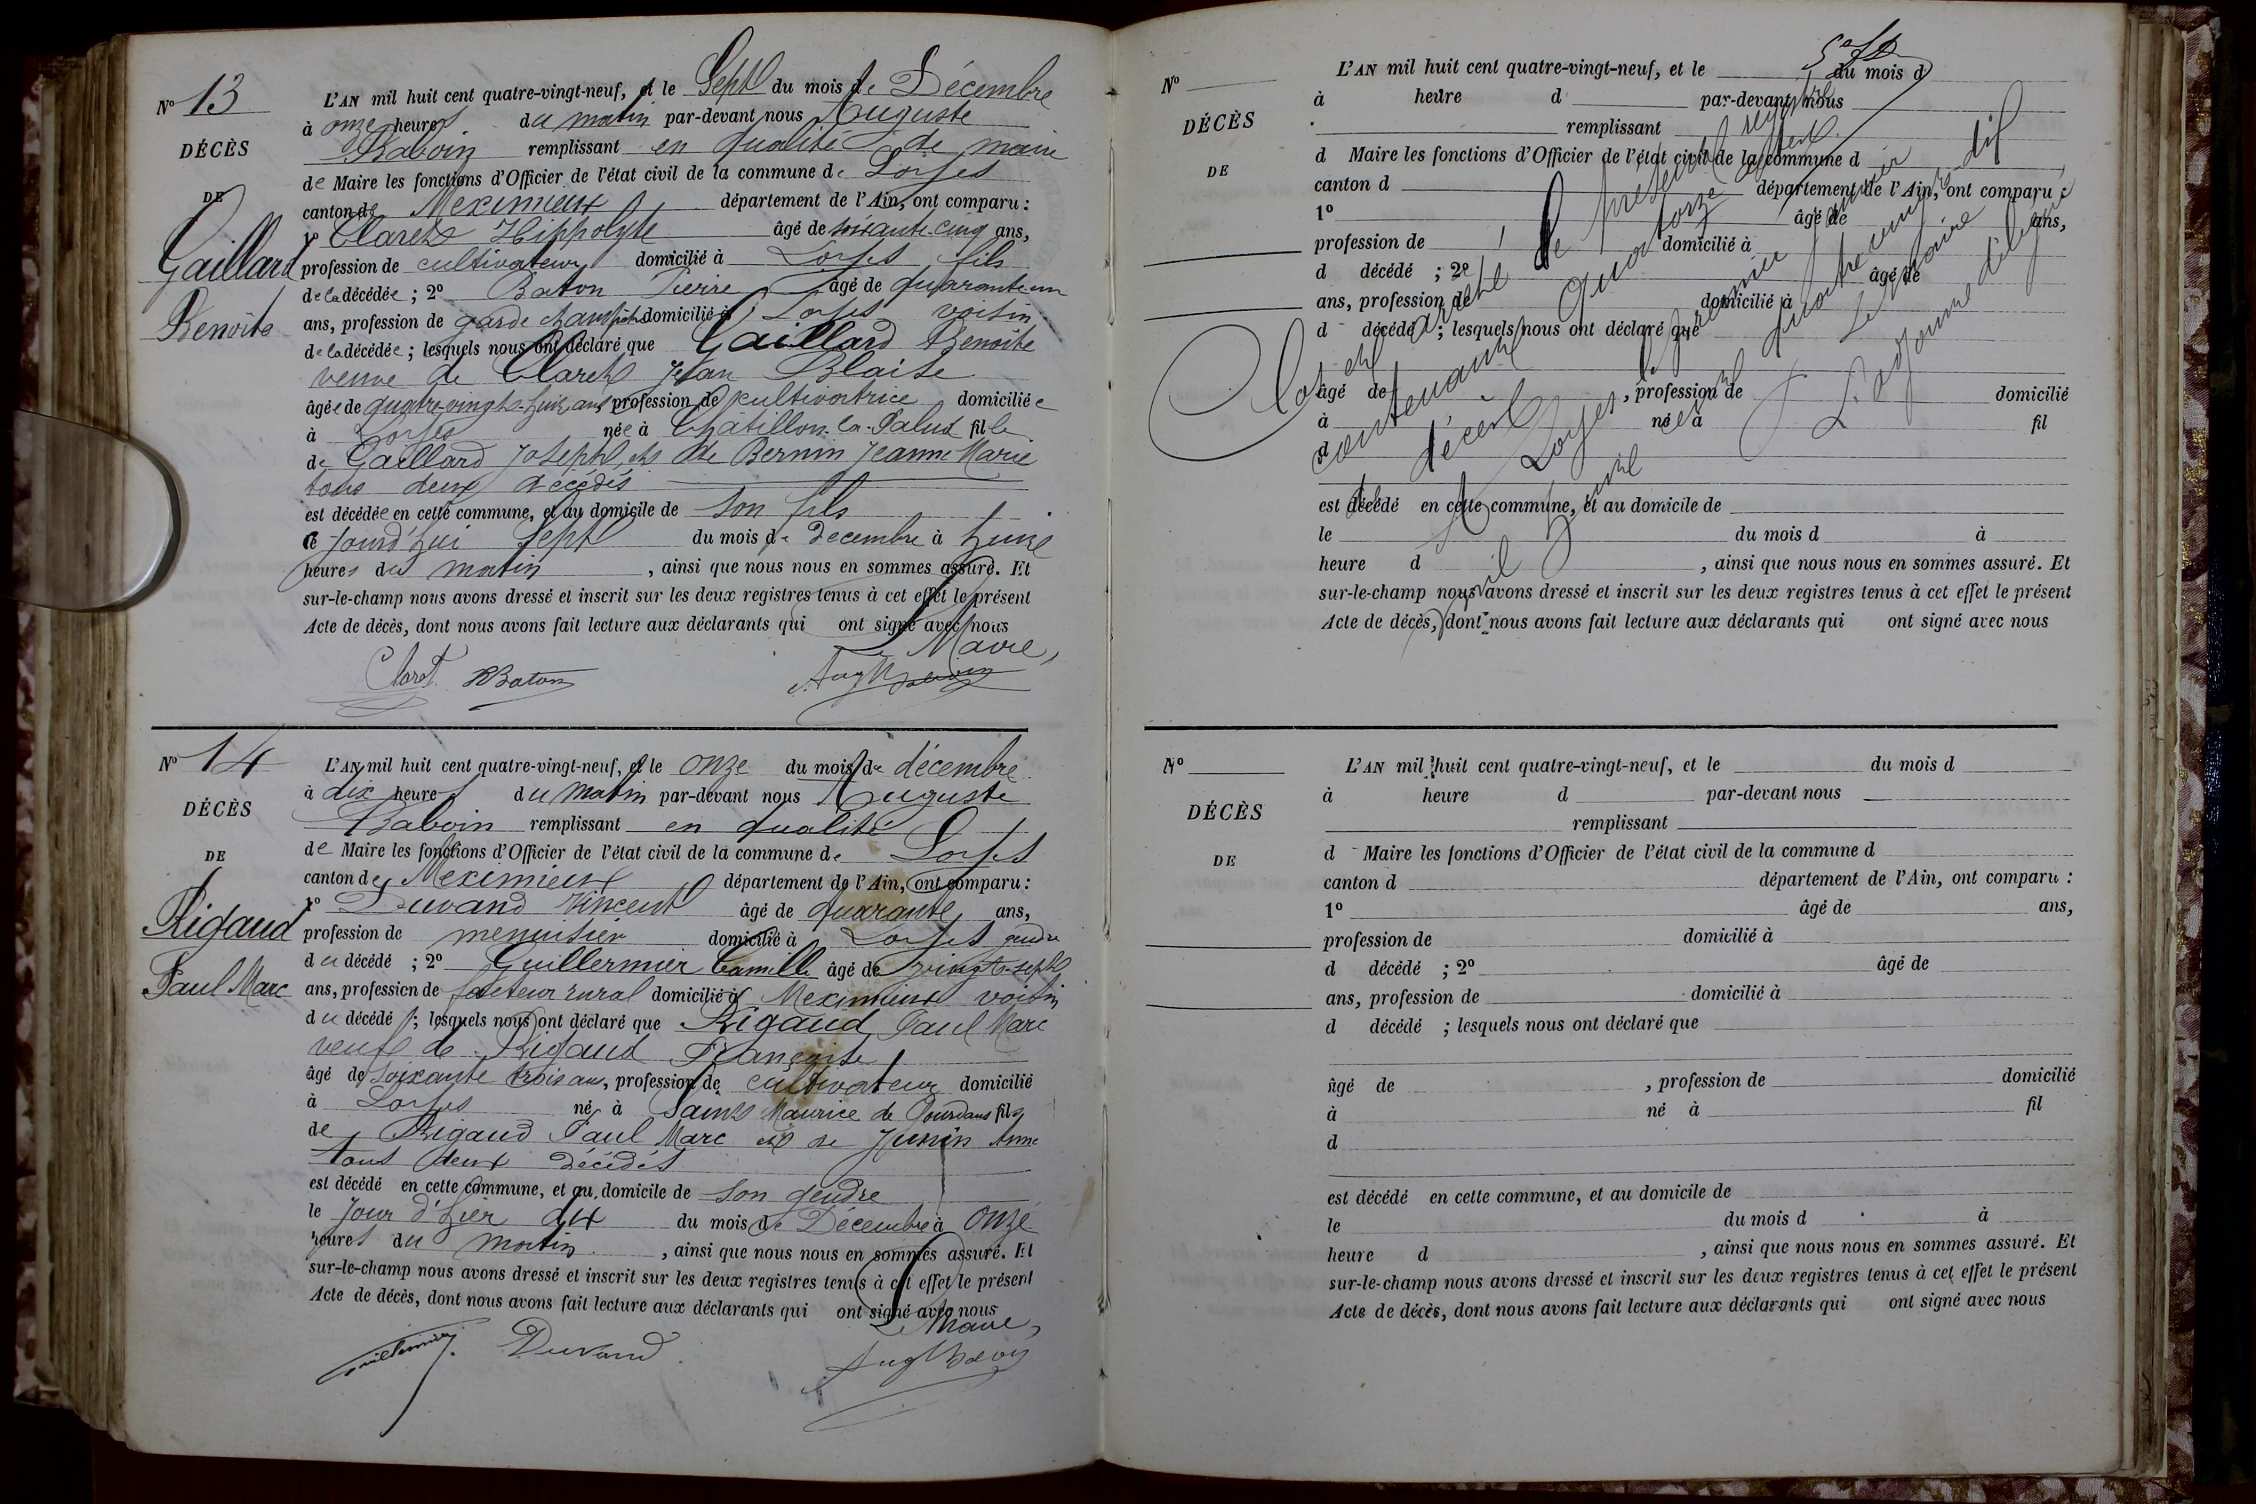 N° 13
DÉCÈS
DE
Gaillard
Benoîte
L'AN mil huit cent quatre-vingt-neuf, et le Sept du mois de Décembre
à onze heures du matin par-devant nous Auguste
Baboin remplissant en qualité de maire
de Maire les fonctions d'Officier de l'état civil de la commune de Loyes
canton de Meximieux département de l'Ain, ont comparu :
1° Claret Hippolyte âgé de soixante-cinq ans,
profession de cultivateur domicilié à Loyes fils
de la décédée ; 2° Baton Pierre âgé de quarante-un
ans, profession de garde champêtre domicilié à Loyes voisin
de la décédée ; lesquels nous ont déclaré que Gaillard Benoîte
veuve de Claret Jean Blaise
âgée de quatre-vingt-huit ans, profession de cultivatrice domiciliée
à Loyes née à Châtillon-la-Palud fille
de Gaillard Joseph et de Bernin Jeanne Marie
tous deux décédés
est décédée en cette commune, et au domicile de son fils
ce jourd'hui sept du mois de Decembre à huit
heures du matin, ainsi que nous nous en sommes assuré. Et
sur-le-champ nous avons dressé et inscrit sur les deux registres tenus à cet effet le présent
Acte de décès, dont nous avons fait lecture aux déclarants qui ont signé avec nous
Le Maire,
Claret PBaton Aug Baboin
N° 14
DÉCÈS
DE
Rigaud
Paul Marc
L'AN mil huit cent quatre-vingt-neuf, et le onze du mois de décembre
à dix heures du matin par-devant nous Auguste
Baboin remplissant en qualité
de Maire les fonctions d'Officier de l'état civil de la commune de Loyes
canton de Meximieux département de l'Ain, ont comparu :
1° Durand Vincent âgé de quarante ans,
profession de menuisier domicilié à Loyes gendre
du décédé ; 2° Guillermier Camille âgé de vingt-sept
ans, profession de facteur rural domicilié à Meximieux voisin
du décédé ; lesquels nous ont déclaré que Rigaud Paul Marc
veuf de Rigaud Françoise
âgé de soixante trois ans, profession de cultivateur domicilié
à Loyes né à Saint Maurice de Gourdans fils
de Rigaud Paul Marc et de Junin Anne
tous deux décédés
est décédé en cette commune, et au domicile de son gendre
le jour d'hier dix du mois de Décembre à onze
heures du matin, ainsi que nous nous en sommes assuré. Et
sur-le-champ nous avons dressé et inscrit sur les deux registres tenus à cet effet le présent
Acte de décès, dont nous avons fait lecture aux déclarants qui ont signé avec nous
Le Maire,
Guillermier Durand Aug Baboin
N°
DÉCÈS
DE
L'AN mil huit cent quatre-vingt-neuf, et le du mois d
à heure d par-devant nous
remplissant
d Maire les fonctions d'Officier de l'état civil de la commune d
canton d département de l'Ain, ont comparu :
1° âgé de ans,
profession de domicilié à
d décédé ; 2° âgé de
ans, profession de domicilié à
d décédé ; lesquels nous ont déclaré que
âgé de , profession de domicilié
à né à fil
d
est décédé en cette commune, et au domicile de
le du mois d à
heure d , ainsi que nous nous en sommes assuré. Et
sur-le-champ nous avons dressé et inscrit sur les deux registres tenus à cet effet le présent
Acte de décès, dont nous avons fait lecture aux déclarants qui ont signé avec nous
Clos et arrêté le présent registre
contenant quatorze actes
de décès
A Loyes, le premier janvier
mil huit cent quatre vingt-dix
Le Maire
N°
DÉCÈS
DE
L'AN mil huit cent quatre-vingt-neuf, et le du mois d
à heure d par-devant nous
remplissant
d Maire les fonctions d'Officier de l'état civil de la commune d
canton d département de l'Ain, ont comparu :
1° âgé de ans,
profession de domicilié à
d décédé ; 2° âgé de
ans, profession de domicilié à
d décédé ; lesquels nous ont déclaré que
âgé de , profession de domicilié
à né à fil
d
est décédé en cette commune, et au domicile de
le du mois d à
heure d , ainsi que nous nous en sommes assuré. Et
sur-le-champ nous avons dressé et inscrit sur les deux registres tenus à cet effet le présent
Acte de décès, dont nous avons fait lecture aux déclarants qui ont signé avec nous